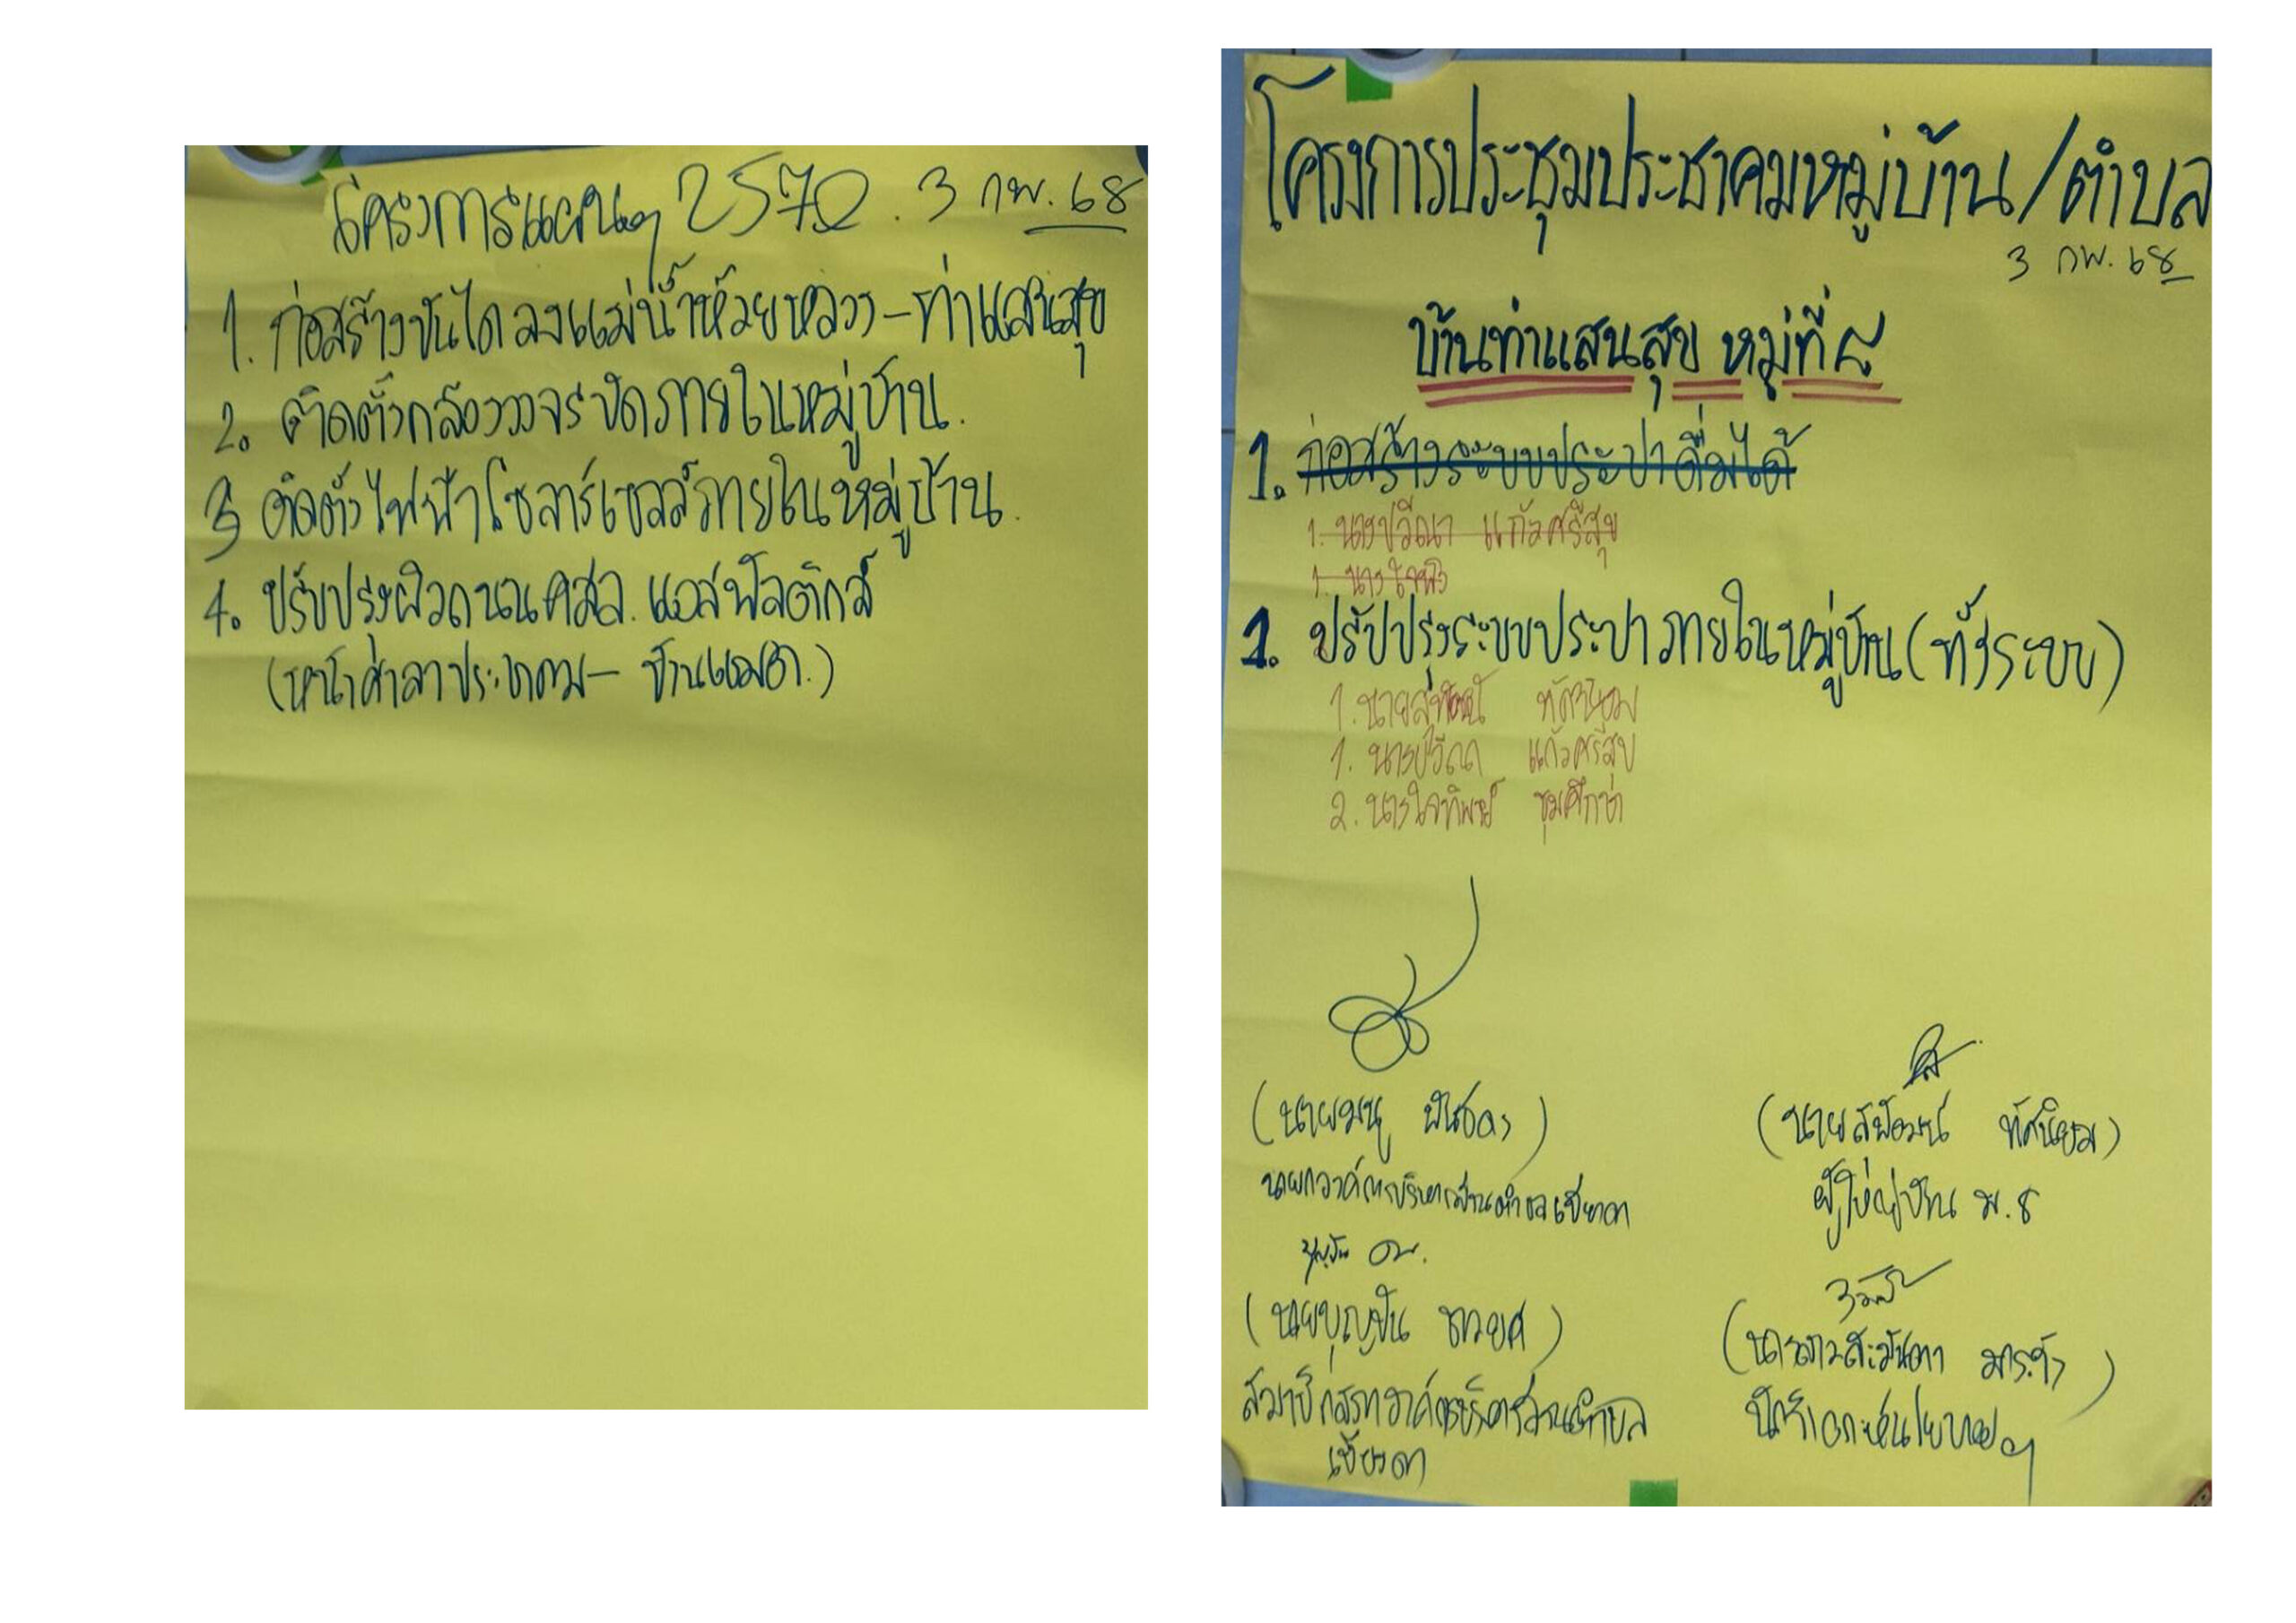 โครงการแผนฯ 2570. 3 กพ. 68
1. ก่อสร้างบันไดลงแม่น้ำห้วยหลวง - ท่าแสนสุข
2. ติดตั้งกล้องวงจรปิดภายในหมู่บ้าน.
3 ติดตั้งไฟฟ้าโซลาร์เซลล์ภายในหมู่บ้าน.
4. ปรับปรุงผิวถนน คสล. แอสฟัลติกส์
(หน้าศาลาประชาคม -
โครงการประชุมประชาคมหมู่บ้าน/ตำบล
3 กพ. 68
บ้านท่าแสนสุข หมู่ที่ ๘
1. ก่อสร้างระบบประปาดื่มได้
1. นางปวีณา แก้วศรีสุข
1. นาง
1. ปรับปรุงระบบประปาภายในหมู่บ้าน (ทั้งระบบ)
1. นายสุพัฒน์ ทัศนิยม
1. นางปวีณา แก้วศรีสุข
2. นางใจทิพย์
(นายมนู
นายกองค์การบริหารส่วนตำบลเซียงดา
(นายสุพัฒน์ ทัศนิยม)
ผู้ใหญ่บ้าน ม.8
(นายบุญปัน
สมาชิกสภาองค์การบริหารส่วนตำบล
เซียงดา
(นางสาว
นักวิเคราะห์นโยบายฯ